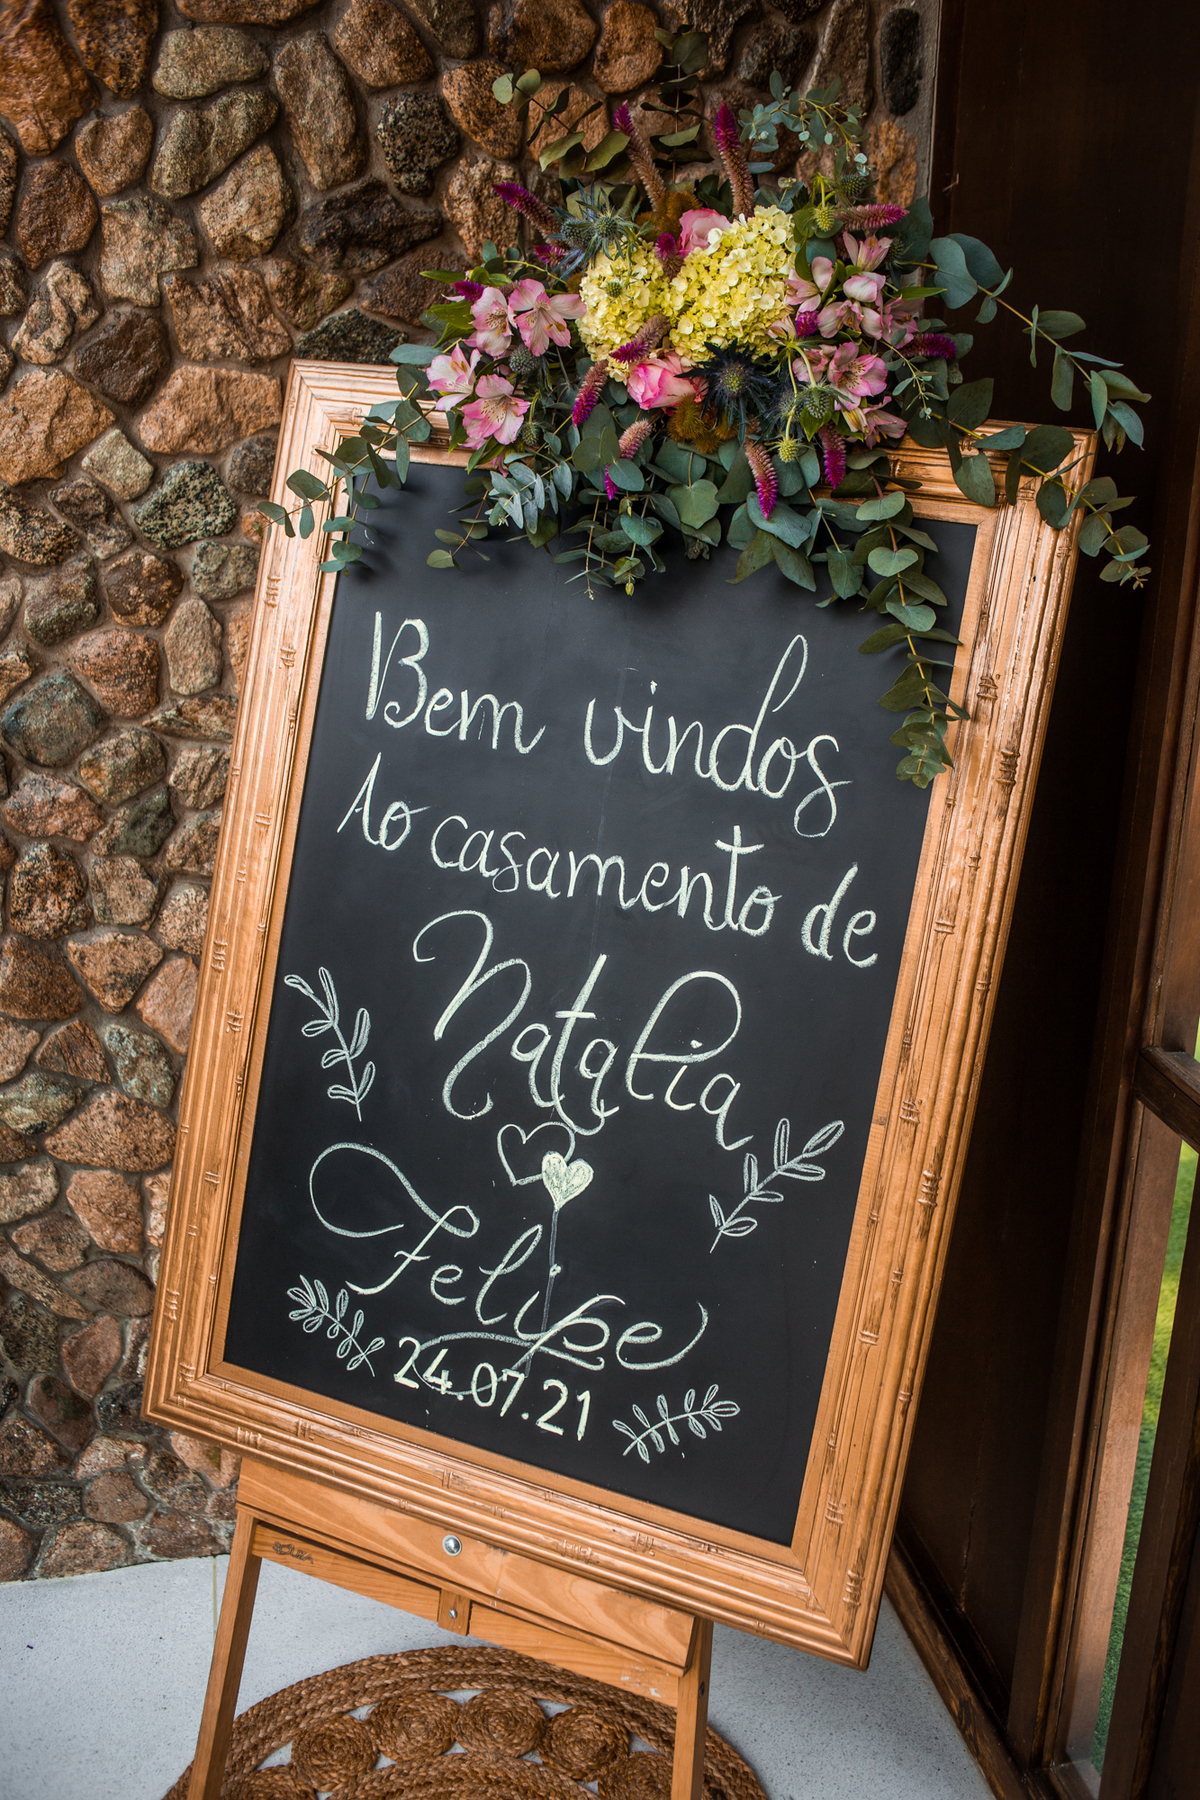 Bem vindos
Ao casamento de
Natalia
Felipe
24.07.21